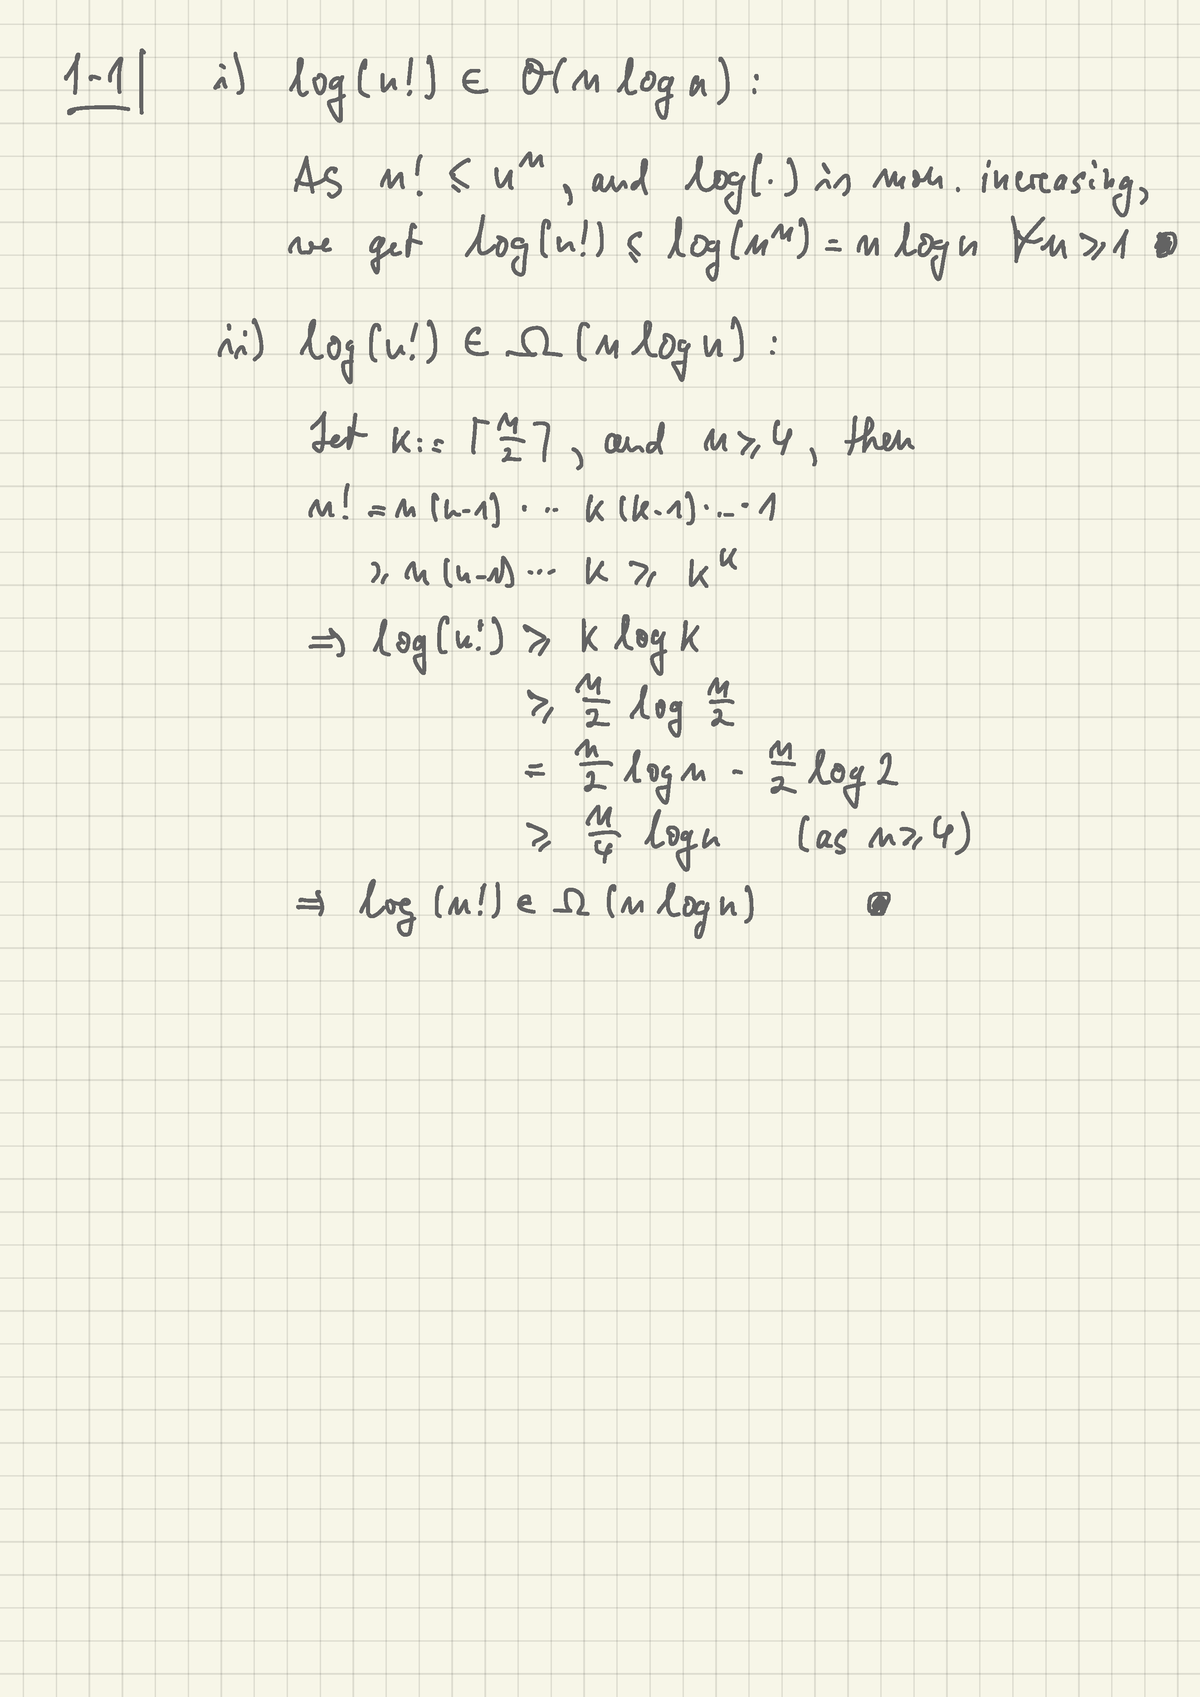 1-1| i) log(n!) ∈ O(n log n) :
As n! ≤ n^n, and log(·) is mon. increasing,
we get log(n!) ≤ log(n^n) = n log n ∀n ≥ 1 ■
ii) log(n!) ∈ Ω(n log n) :
Let k := ⌈n/2⌉, and n ≥ 4, then
n! = n(n-1) · ·· k(k-1)· ... · 1
≥ n(n-1) ··· k ≥ k^k
⇒ log(n!) ≥ k log k
≥ n/2 log n/2
= n/2 log n - n/2 log 2
≥ n/4 log n (as n ≥ 4)
⇒ log(n!) ∈ Ω(n log n) ■